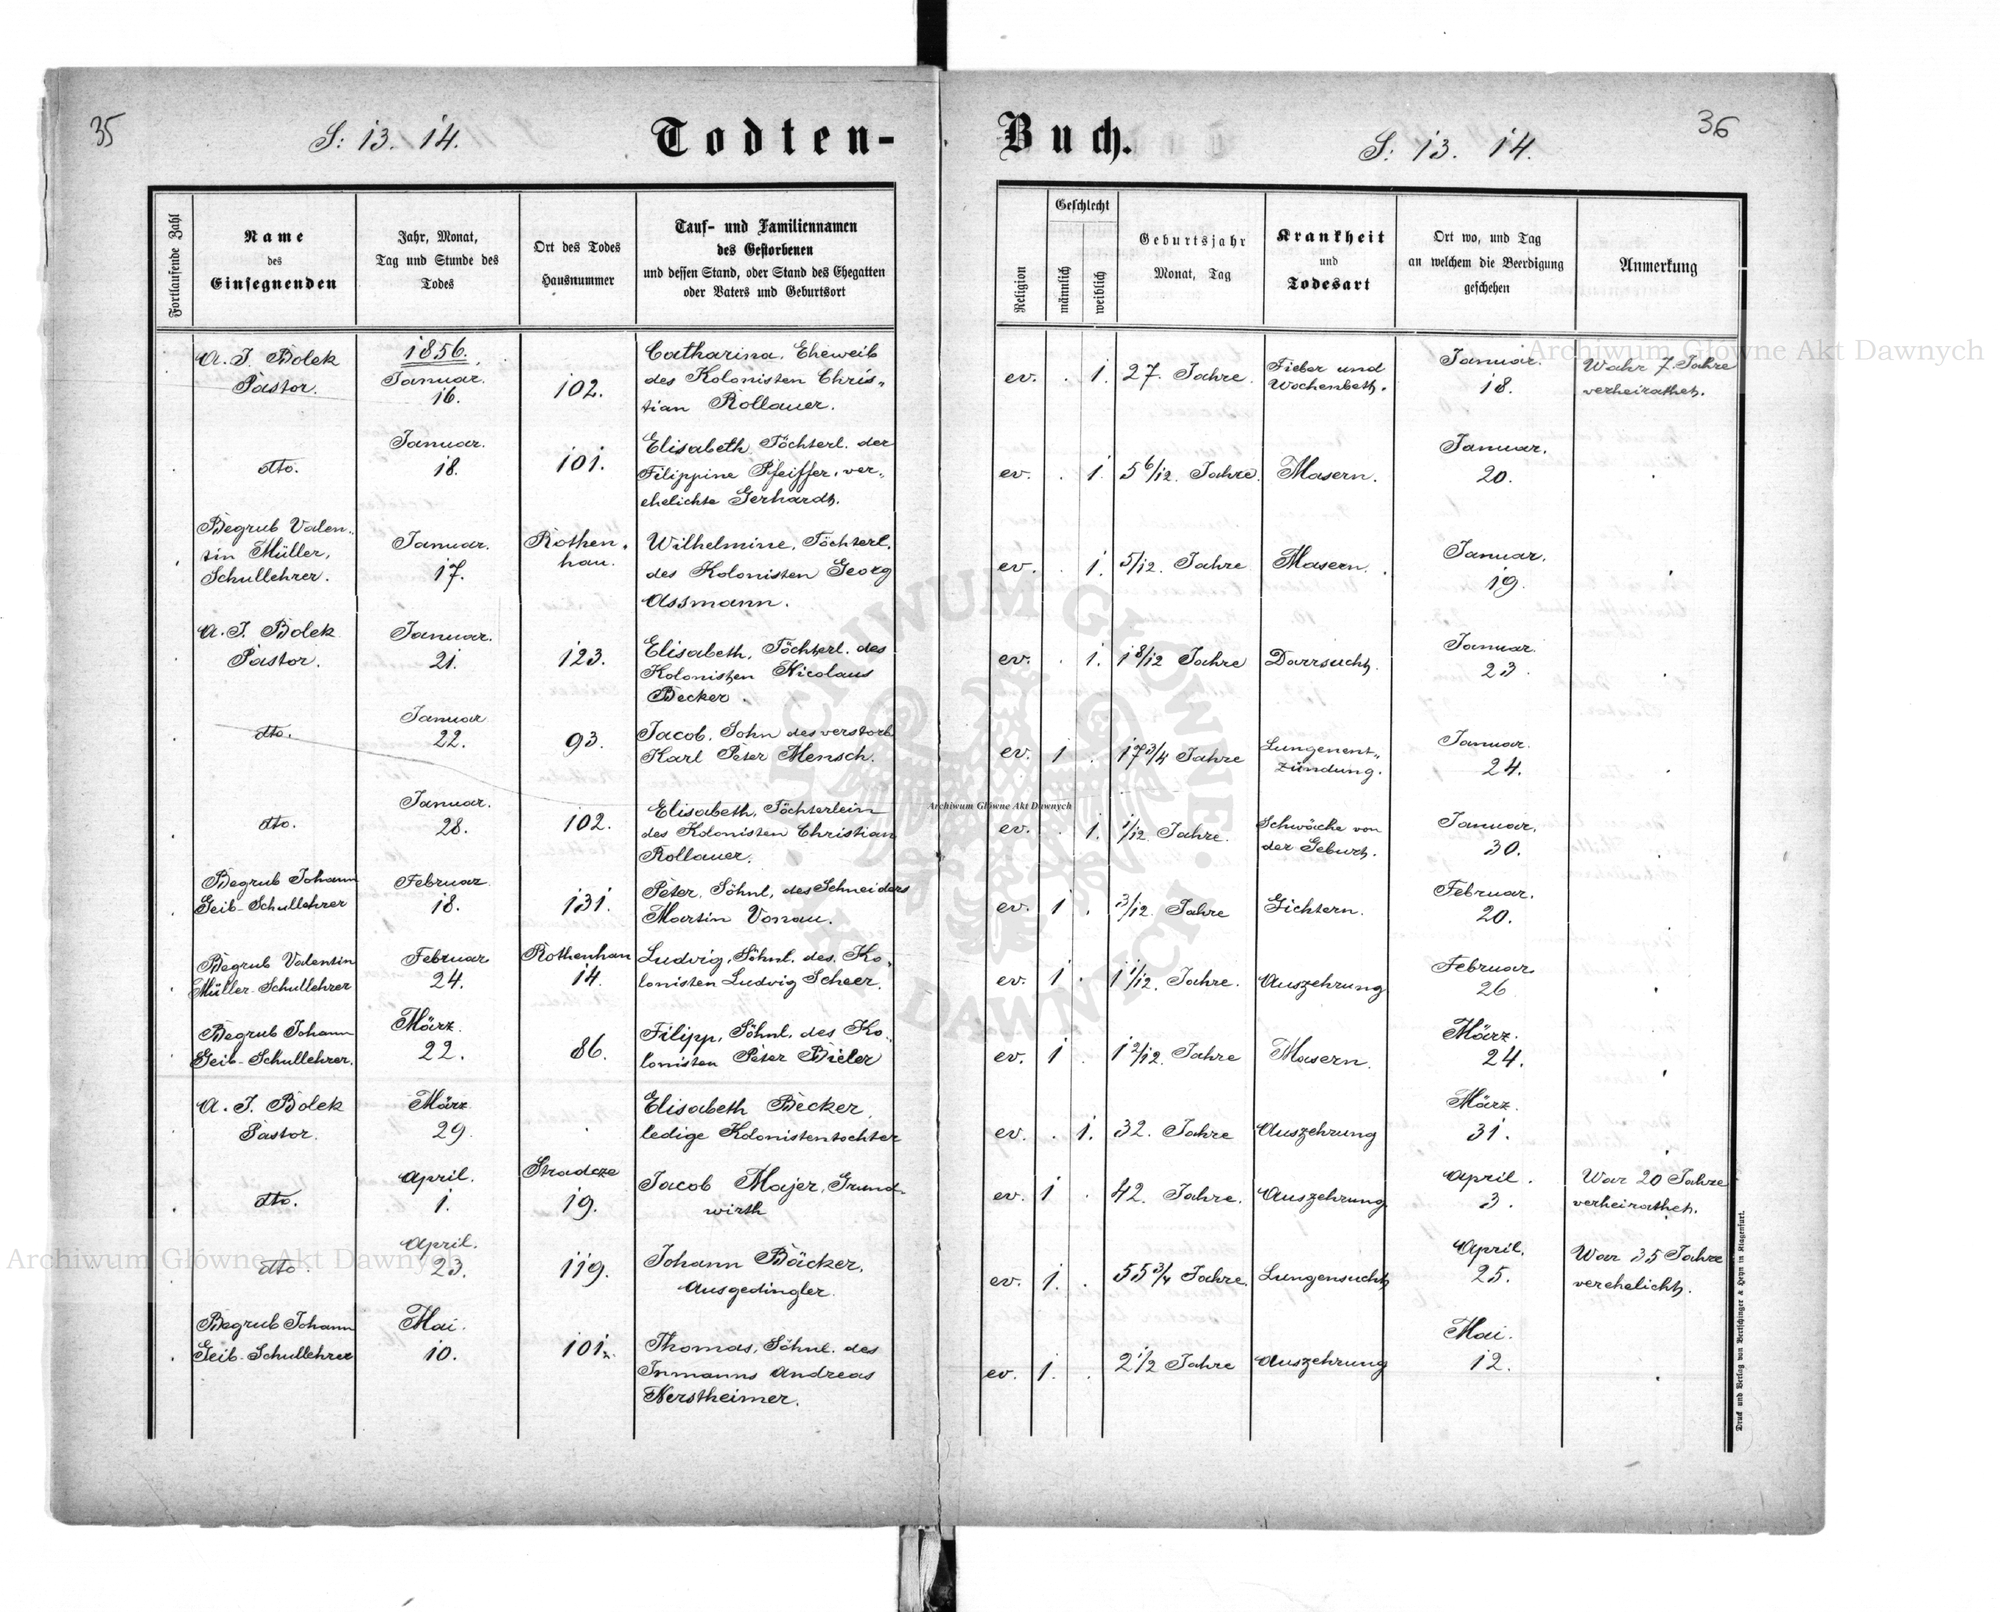 35
S: 13. 14.
Todten-
Buch.
S: 13. 14.
36
Fortlaufende Zahl
Name
des
Einsegnenden
Jahr, Monat,
Tag und Stunde des
Todes
Ort des Todes
Hausnummer
Tauf- und Familiennamen
des Gestorbenen
und dessen Stand, oder Stand des Ehegatten
oder Vaters und Geburtsort
Religion
Geschlecht
männlich
weiblich
Geburtsjahr
Monat, Tag
Krankheit
und
Todesart
Ort wo, und Tag
an welchem die Beerdigung
geschehen
Anmerkung
A. J. Bolek
Pastor.
1856.
Januar.
16.
102.
Catharina, Eheweib
des Kolonisten Chris-
tian Rollauer.
ev. . 1. 27. Jahre.
Fieber und
Wochenbett.
Januar.
18.
Wahr 7 Jahre
verheirathet.
dto.
Januar.
18.
101.
Elisabeth Töchterl. der
Filippine Pfeiffer, ver-
ehelichte Gerhardt.
ev. . 1. 5 6/12. Jahre.
Masern.
Januar.
20.
Begrub Valen-
tin Müller,
Schullehrer.
Januar.
17.
Rothen-
han.
Wilhelmine, Töchterl.
des Kolonisten Georg
Assmann.
ev. . 1. 5/12. Jahre
Masern.
Januar.
19.
A. J. Bolek
Pastor.
Januar.
21.
123.
Elisabeth, Töchterl. des
Kolonisten Nicolaus
Becker.
ev. . 1. 1 8/12 Jahre
Darrsucht.
Januar.
23.
dto.
Januar
22.
93.
Jacob, Sohn des verstorb
Karl Peter Mensch.
ev. 1 . 17 3/4 Jahre
Lungenent-
zündung.
Januar.
24.
dto.
Januar.
28.
102.
Elisabeth, Töchterlein
des Kolonisten Christian
Rollauer.
ev. . 1. 1/12 Jahre.
Schwäche von
der Geburt.
Januar.
30.
Begrub Johann
Geib-Schullehrer
Februar.
18.
131.
Peter, Söhnl. des Schneiders
Martin Vonau.
ev. 1 . 3/12. Jahre
Gichtern.
Februar.
20.
Begrub Valentin
Müller-Schullehrer
Februar
24.
Rothenhan
14.
Ludvig, Söhnl. des Ko-
lonisten Ludvig Scheer.
ev. 1 . 1 1/12. Jahre.
Auszehrung
Februar.
26
Begrub Johann
Geib-Schullehrer.
März.
22.
86.
Filipp, Söhnl. des Ko-
lonisten Peter Bieler
ev. 1 . 1 2/12. Jahre
Masern.
März.
24.
A. J. Bolek
Pastor.
März
29.
Elisabeth Becker,
ledige Kolonistentochter
ev. . 1. 32. Jahre
Auszehrung
März.
31.
dto.
April.
1.
Stradcze
19.
Jacob Majer, Grund-
wirth
ev. 1 . 42. Jahre.
Auszehrung
April.
3.
War 20 Jahre
verheirathet.
dto.
April.
23.
119.
Johann Bäcker,
Ausgedingler.
ev. 1. . 55 3/4 Jahre.
Lungensucht
April.
25.
War 35 Jahre
verehelicht.
Begrub Johann
Geib-Schullehrer
Mai.
10.
101.
Thomas, Söhnl. des
Inmanns Andreas
Nerstheimer.
ev. 1. . 2 1/2 Jahre
Auszehrung
Mai.
12.
Druck und Verlag von Bertschinger & Heyn in Klagenfurt.
Archiwum Główne Akt Dawnych
Archiwum Główne Akt Dawnych
Archiwum Główne Akt Dawnych
ARCHIWUM GŁÓWNE AKT DAWNYCH